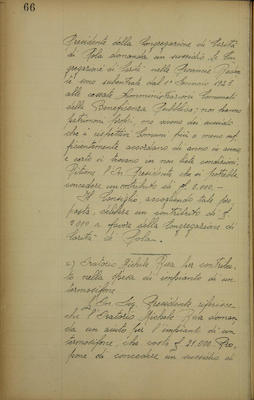 66
Presidente della Congregazione di Carità
di Pola domanda un sussidio. Le Con
gregazioni di Carità nelle Province
sono subentrate dal 1° Gennaio
alle cessate Amministrazioni Comunali
della Beneficenza Pubblica; non hanno
patrimoni ma vivono dei sussidi
che i rispettivi Comuni più o meno suf
ficientemente accordano di anno in anno
e certo si trovano in non liete condizioni.
Ritiene l'On. Presidente che si potrebbe
concedere un contributo di £ 2.000.-
Il Consiglio, accogliendo tale pro
posta, delibera un contributo di £
2000 a favore della Congregazione di
Carità di Pola.
c) Oratorio Michele Rua per contribu
to nella spesa di impianto di un
termosifone
L'On. Sig. Presidente riferisce
che l'Oratorio Michele Rua doman
da un aiuto per l'impianto di un
termosifone, che costa £ 21.000. Pro
pone di concedere un sussidio di